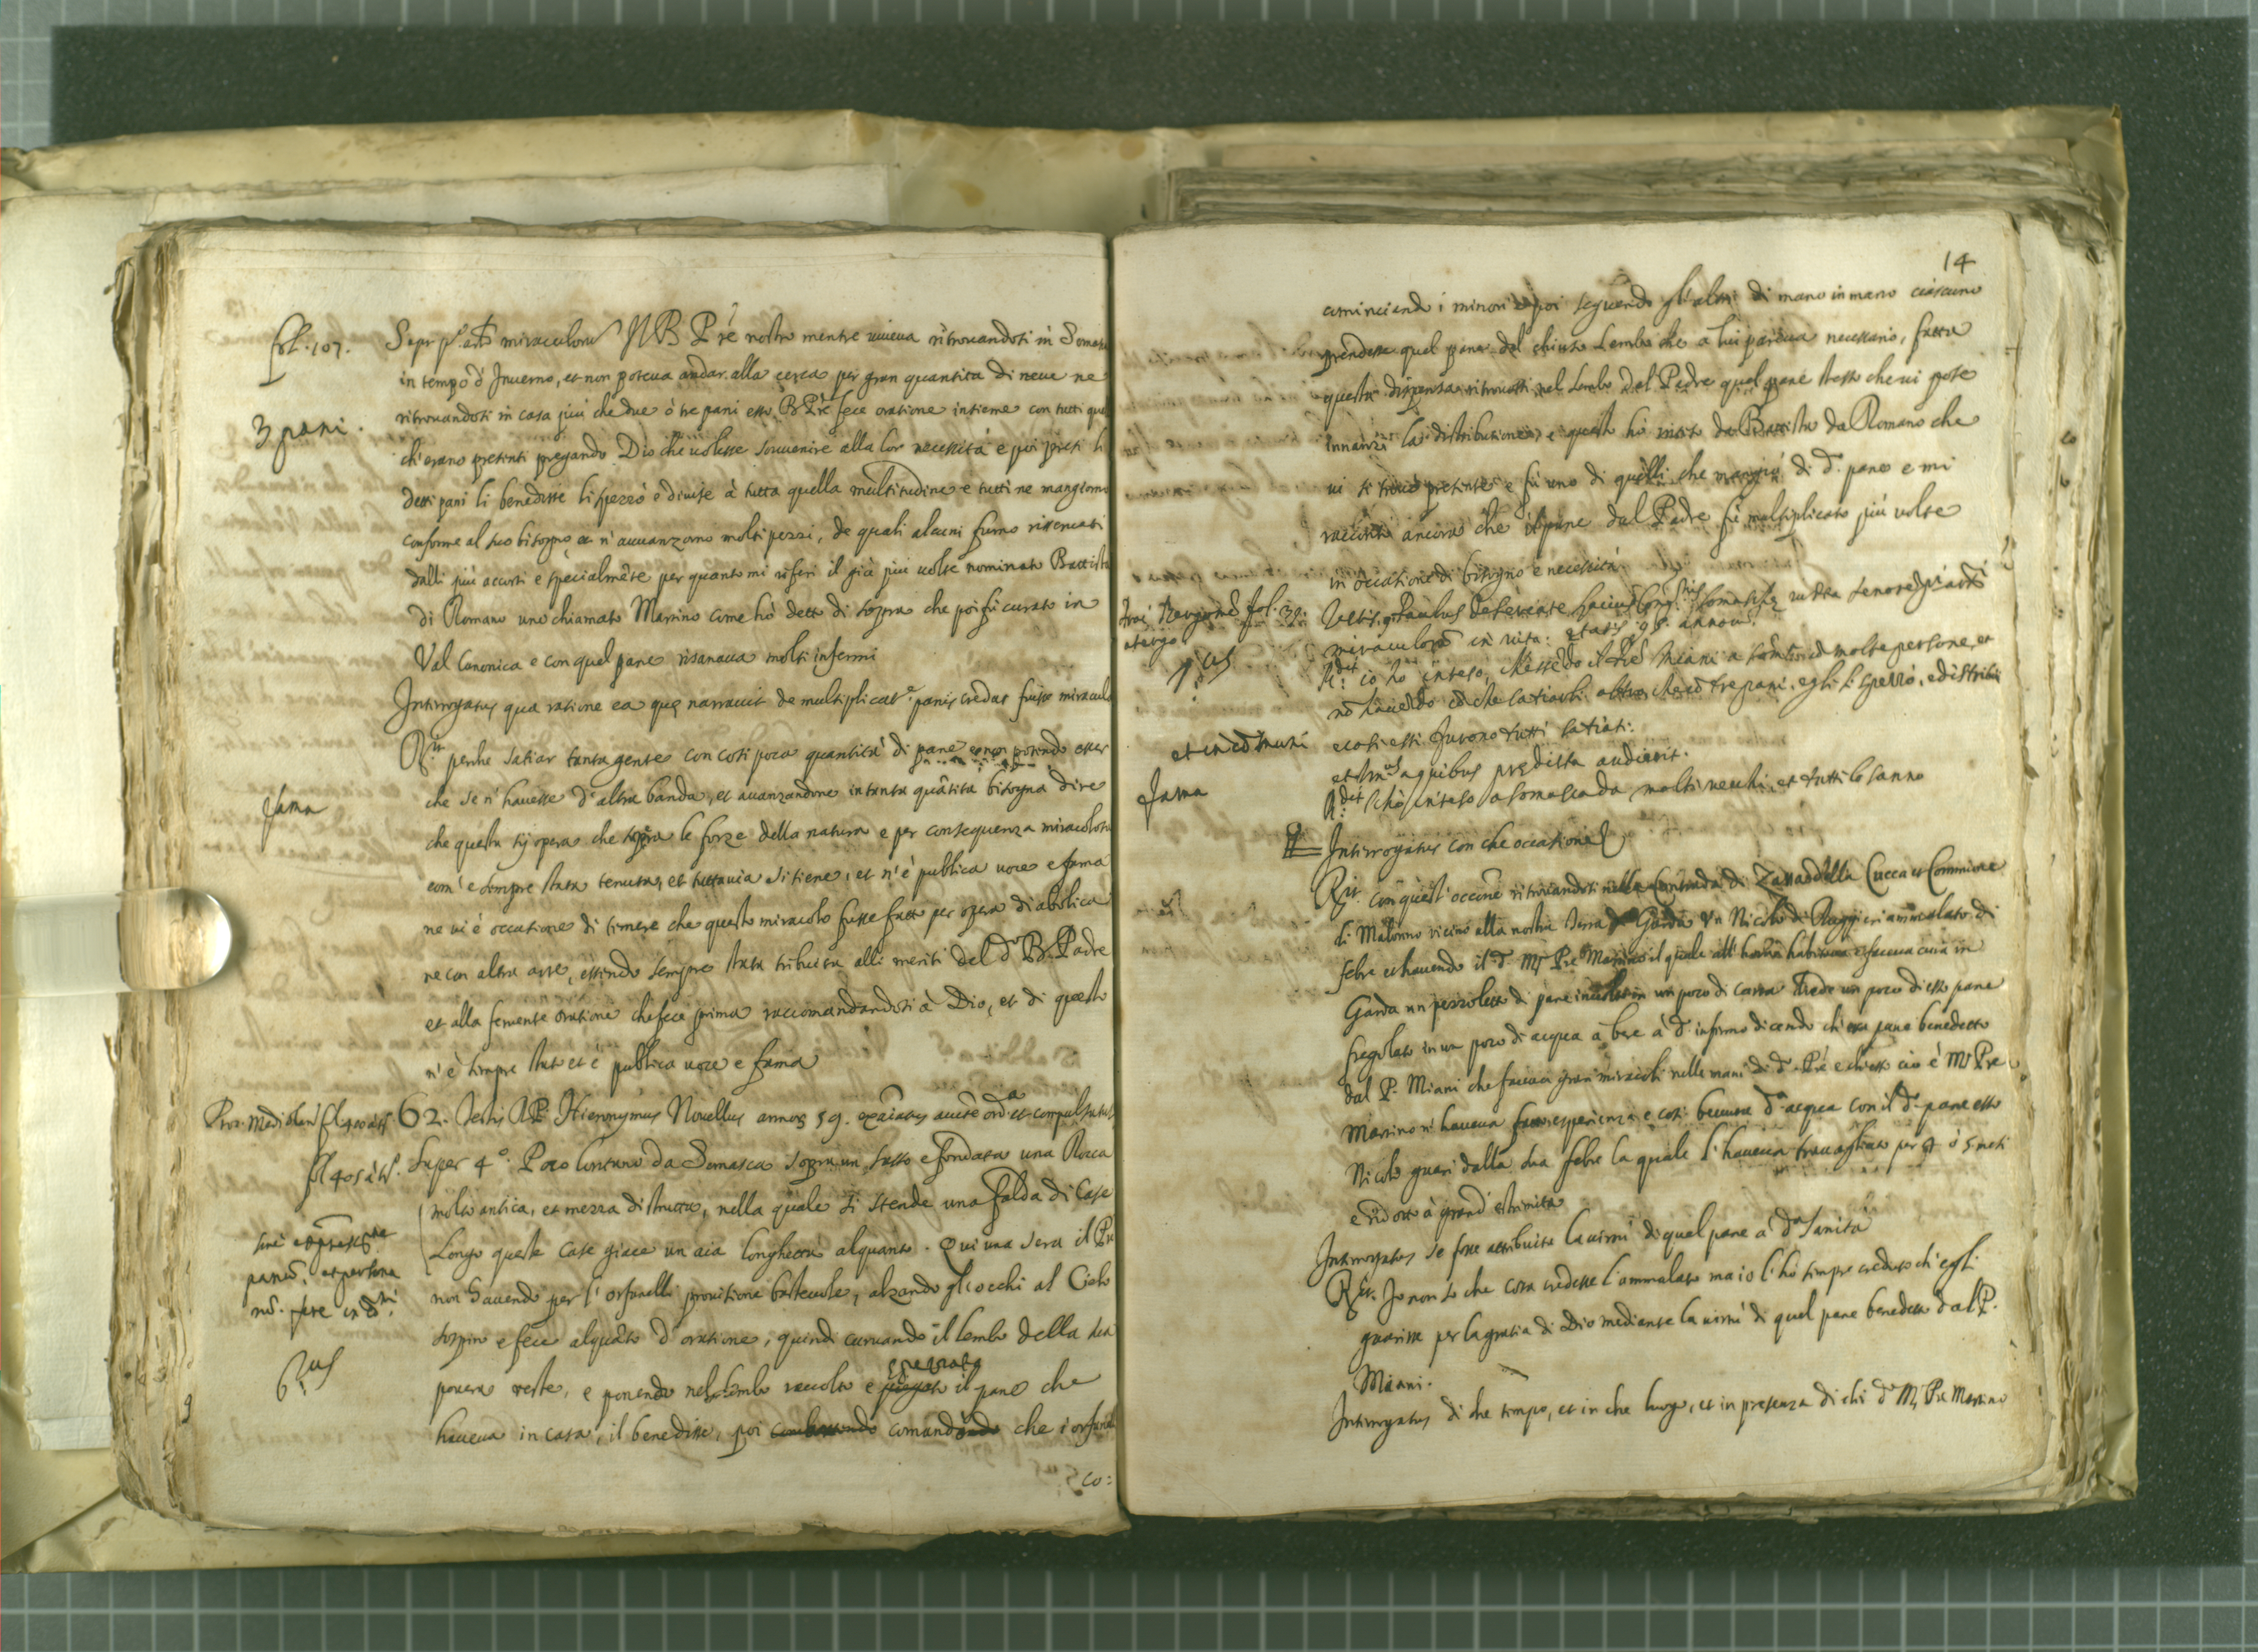 fol. 107.
3 pani.
Super pº. artº miraculoru Il B. Pre nostro mentre viveva ritrovandosi in Somasca
in tempo d'Inverno, et non poteva andar alla cerca per gran quantita di neve ne
ritrovandosi in casa più che due ò tre pani esso B. Pre fece oratione insieme con tutti que
ch'erano presenti pregando Dio che volesse souvenire alla lor necessità e poi presi li
detti pani li benedisse li spezzò e divise à tutta quella moltitudine e tutti ne mangiorno
conforme al suo bisogno et n'avvanzorno molti pezzi, de quali alcuni furno riservati
dalli più accorti e specialmête per quanto mi riferi il già più volte nominato Battista
di Romano uno chiamato Martino come hò detto di sopra che poi fù curato in
Val Canonica e con quel pane risanava molti infermi
Interrogatus qua ratione ea que narravit de multiplicate panis credat fuisse miracul
Rit perche satiar tanta gente con così poca quantità di pane e non potendo esser
fama
che se n'havesse d'altra banda, et avanzandone in tanta quâtita bisogna dire
che questa sij opera che sopra le forze della natura e per consequenza miracolosa
com'e sempre stata tenuta, et tuttavia si tiene, et n'è publica voce e fama
ne vi è occasione di temere che questo miracolo fusse fatto per opera diabolica
ne con altra arte, essendo sempre stata tribuita alli meriti del dº B. Padre
et alla fervente oratione che fece prima raccomandandosi à Dio, et di questo
n'è sempre stato et è publica voce e fama
Proc. Mediolan fol 400 atº.
62. Testis R.P. Hieronymus Novellus annor 59. exaiatus aucte ordª et compulsatus
fol 405 atº.
Super 4º. Poco lontano da Somasca sopra un sasso e fondata una Rocca
molto antica, et mezza distrutta, nella quale si stende una falda di Case
Longo queste case giace un aia longhetta alquanto. Qui una sera il Pre
non havendo per l'orfanelli provisione bastevole, alzando gli occhi al Cielo
6us
sospirò e fece alquâto d'oratione, quindi curvando il lembo della sua
povera veste, e ponendo nel lembo raccolto e spezzato il pane che
haveva in casa, il benedisse, poi comandando che i orfanel
co:
14
cominciando i minori e poi seguendo gl'altri di mano in mano ciascuno
prendesse quel pane dal chiuso Lembo che a lui pareva necessario, fatta
questa dispensa ritrovossi nel Lembo dal Padre quel pane stesso che vi pose
innanzi la distributione, e questo hò inteso da Battista da Romano che
vi si trovò presente e fù uno di quelli che mangiò di dº. pane e mi
raccontò ancora che il pane dal Padre fù multiplicato più volte
in occasione di bisogno e necessità.
fol. 32.
atergo
Testis, q. Paulus de Seriate huius Congnis Somasche iuxta tenorem pi artⁱ
miraculorũ in vita: etatis 98. annorũ.
pus
Rdit io hò inteso, ch'essẽdo il Pre Miani a Somasca cõ molte persone, et
nõ havẽdo cõ che satiarli altro che cõ tre pani. egli li spezzò, e distribuì
et in cõmuni
e così essi furono tutti satiati.
et Intus a quibus predicta audierit.
fama
Rdit l'hò inteso a Somasca da molti vecchi, et tutti lo sanno
Interrogatus con che occasione
Rit con quest'occone ritrovandosi nella Contrada di Zazza della Cucca et Commune
di Malonno vicino alla nostra Terra di Garda Un Nicolò di Ruggieri ammalato di
febre et havendo il dº Ms Pre Martino il quale all'hora habitava e faceva cura in
Garda un pezzoletto di pane involto in un poco di carta diede un poco di esso pane
fregolato in un poco di acqua a bere à dº infermo dicendo ch'era pane benedetto
dal P. Miani che faceva gran miracoli nelle mani di dº Pre e di esso cio è Ms Pre
Martino n'haveva fatto esperienza e così bevuta dª acqua con il dº pane esso
Nicolò guarì dalla sua febre la quale l'haveva travagliato per 4 ò 5 mesi
e ridotto à grand'estremita
Interrogatus se fosse attribuito la virtù di quel pane à dª sanità
Rit. Io non sò che cosa credesse l'ammalato ma io l'hò sempre creduto ch'egli
guarisse per la gratia di Dio mediante la virtù di quel pane benedetto dal P.
Miani.
Interrogatus di che tempo, et in che luogo, et in presenza di chi dº Ms Pre Martino